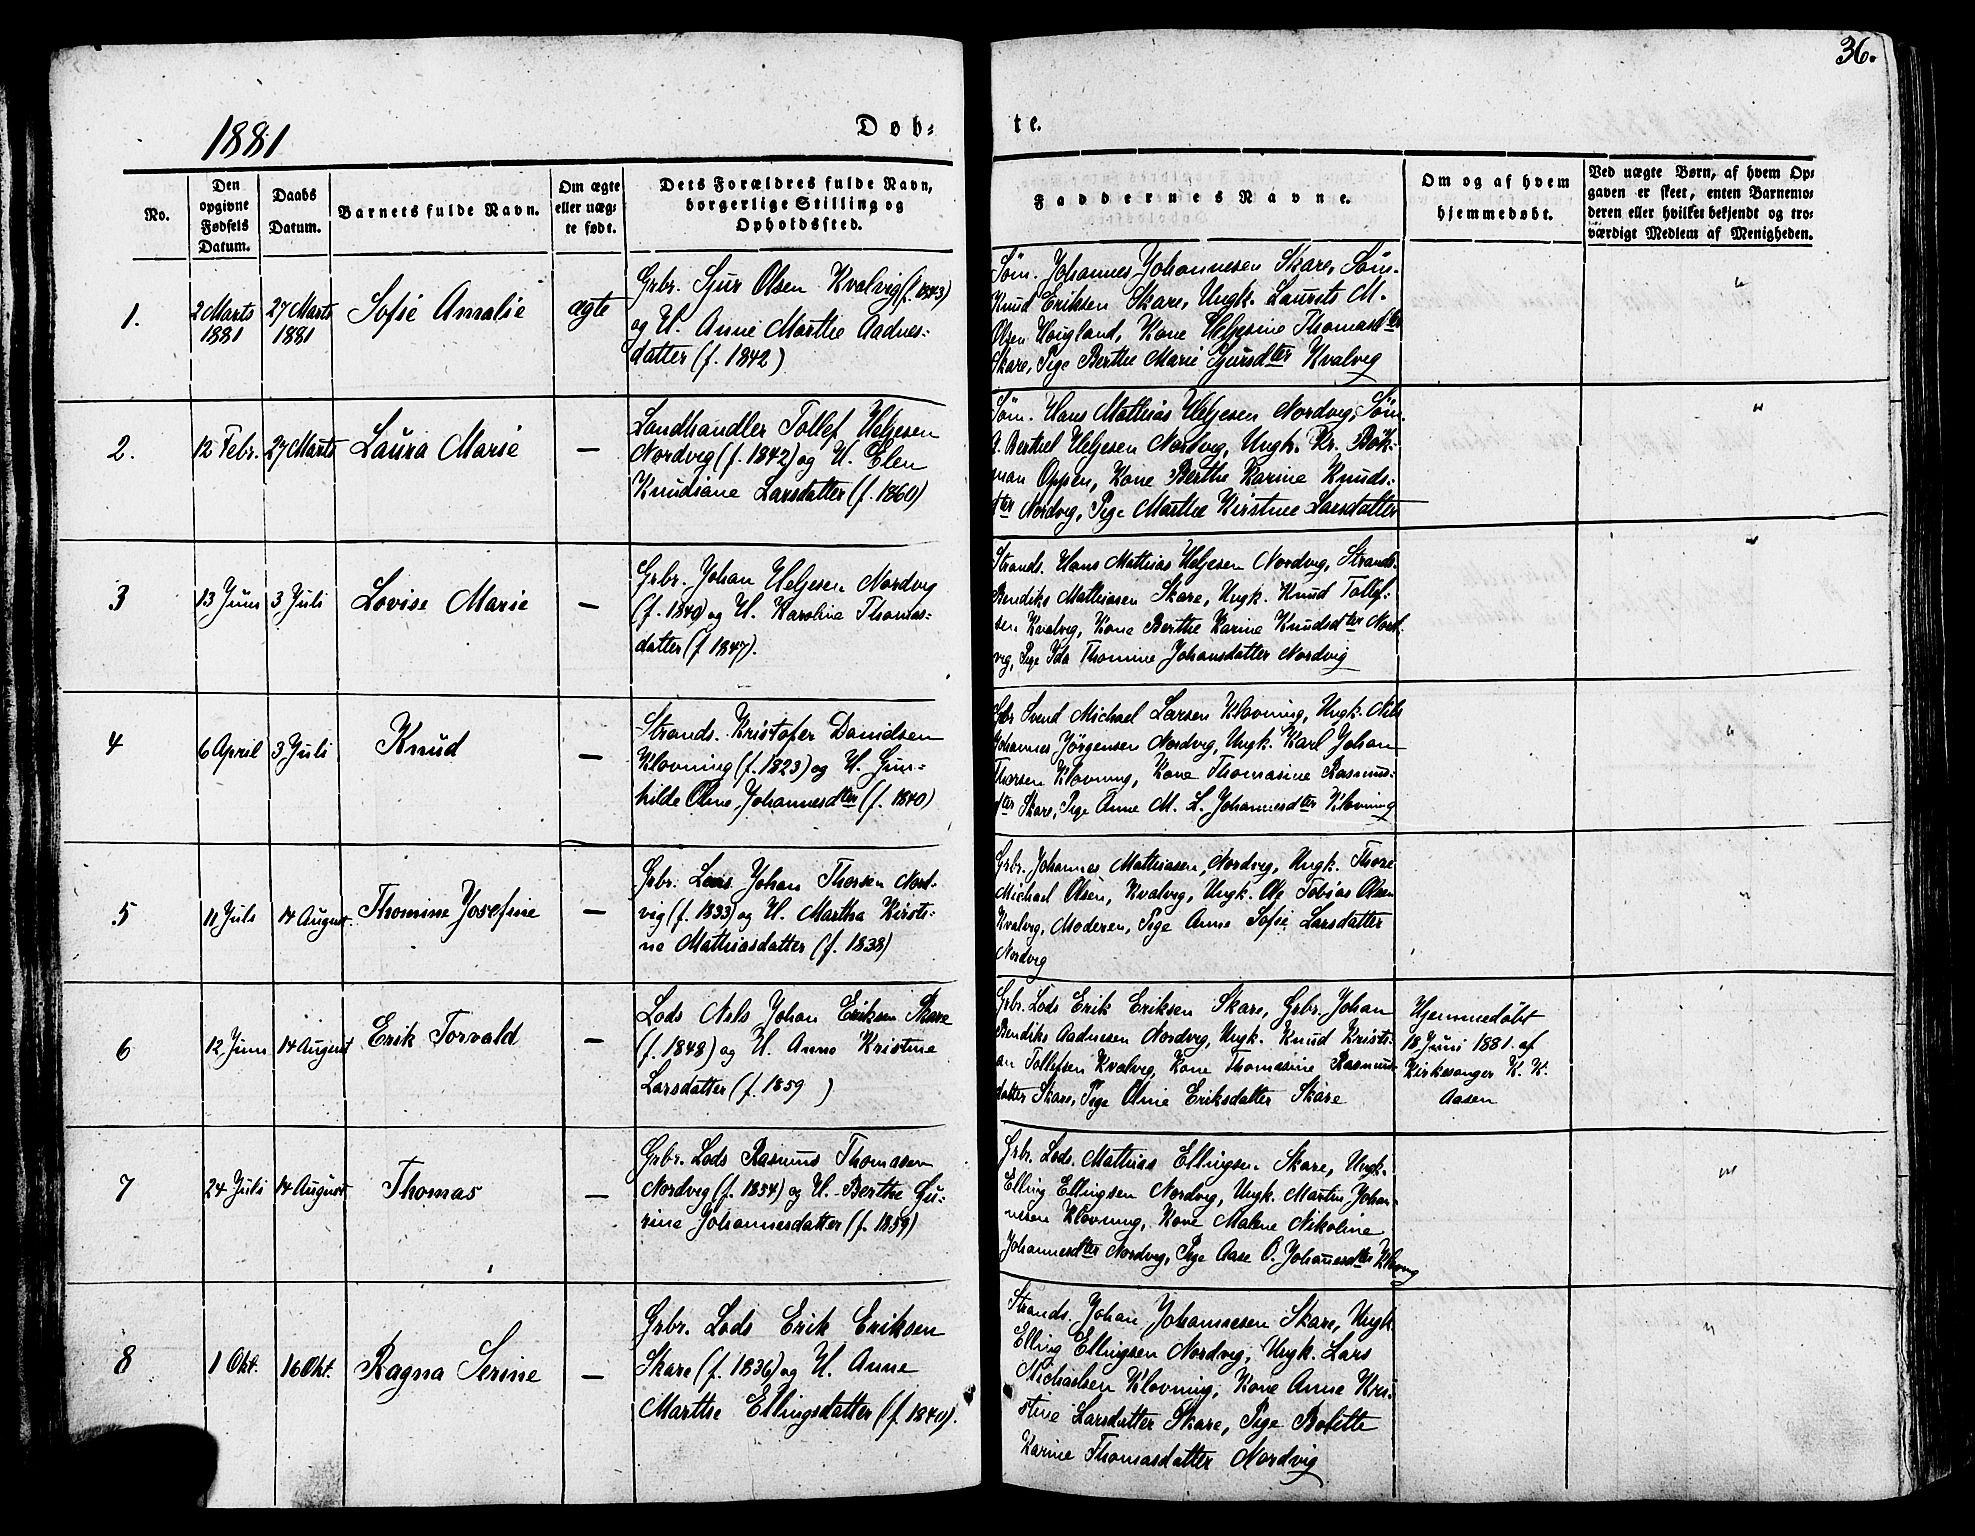 36.
1881
Døb-
te.
No.
Den
opgivne
Fødsels
Datum.
Daabs
Datum.
Barnets fulde Navn.
Om ægte
eller uæg-
te født.
Dets Forældres fulde Navn,
borgerlige Stilling og
Opholdssted.
Faddernes Navne.
Om og af hvem
hjemmedøbt.
Ved uægte Børn, af hvem Op-
gaven er skeet, enten Barnemo-
deren eller hvilket bekjendt og tro-
værdigt Medlem af Menigheden.
1.
2 Marts
1881
27 Marts
1881
Sofie Amalie
ægte
Grbr. Sjur Olsen Kvalvig (f. 1843)
og H. Anne Marthe Aadnes-
datter (f. 1842)
Søm. Johannes Johannesen Skare, Søm.
Knud Eriksen Skare, Ungk. Laurits M.
Olsen Hoigland, Kone Heljesine Thomasdter
Skare, Pige Berthe Marie Sjursdter Kvalvig
"
2.
12 Febr.
27 Marts
Laura Marie
—
Landhandler Tollef Heljesen
Nordvig (f. 1842) og H. Elen
Knudiane Larsdatter (f. 1860)
Søm. Hans Mathias Heljesen Nordvig, Søm.
A. Berthel Heljesen Nordvig, Ungk. Kr. Bøk-
man Oppen, Kone Berthe Karine Knuds-
dter Nordvig, Pige Marthe Kirstine Larsdatter
"
3
13 Juni
3 Juli
Lovise Marie
—
Grbr. Johan Heljesen Nordvig
(f. 1840) og H. Karoline Thomas-
datter (f. 1847).
Strands. Hans Mathias Heljesen Nordvig, Strands.
Bendiks Mathiasen Skare, Ungk. Knud Tollef-
sen Kvalvig, Kone Berthe Karine Knudsdter Nord-
vig, Pige Ida Thomine Johansdatter Nordvig
"
4
6 April
3 Juli
Knud
—
Strands. Kristofer Danidsen
Klovning (f. 1823) og H. Gun-
hilde Oline Johannesdter (f. 1840)
Gbr Svend Michael Larsen Klovning, Ungk. Nils
Johannes Jørgensen Nordvig, Ungk. Karl Johan
Thorsen Klovning, Kone Thomasine Rasmus-
dter Skare, Pige Anne M. L. Johannesdter Klovning
"
5
11 Juli
14 August
Thomine Josefine
—
Grbr. Lars Johan Thorsen Nord-
vig (f. 1833) og H. Martha Kirsti-
ne Mathiasdatter (f. 1838)
Grbr. Johannes Mathiasen, Nordvig, Ungk. Thore
Michael Olsen, Kvalvig, Ungk. Ole Tobias Olsen
Kvalvig, Moderen, Pige Anne Sofie Larsdatter
Nordvig
"
6
12 Juni
14 August
Erik Torvald
—
Lods Nels Johan Eriksen Skare
(f. 1848) og H. Anne Kristine
Larsdatter (f. 1859 )
Grbr. Lods Erik Eriksen Skare, Grbr. Johan
Bendiks Aadnesen Nordvig, Ungk. Knud Kristi-
an Tollefsen Kvalvig, Kone Thomasine Rasmus-
datter Skare, Pige Oline Eriksdatter Skare
Hjemmedøbt
18 Juni 1881 af
Kirkesanger K. K.
Aasen
7
24 Juli
14 August
Thomas
—
Grbr. Lods Rasmus Thomasen
Nordvig (f. 1854) og H. Berthe Gu-
rine Johannesdatter (f. 1859)
Grbr. Lods. Mathias Ellingsen Skare, Ungk.
Elling Ellingsen Nordvig, Ungk. Martin Johan-
nesen Klovning, Kone Malene Nikoline
Johannesdter Nordvig, Pige Aase O. Johanesdter Klovng
"
8
1 Okt.
16 Okt.
Ragna Serine
—
Grbr. Lods Erik Eriksen
Skare (f. 1836) og H. Anne
Marthe Ellingsdatter (f. 1840).
Strands. Johan Johannesen Skare, Ungk
Elling Ellingsen Nordvig, Ungk. Lars
Michaelsen Klovning, Kone Anne Kri-
stine Larsdatter Skare, Pige Bolette
Karine Thomasdatter Nordvig
"